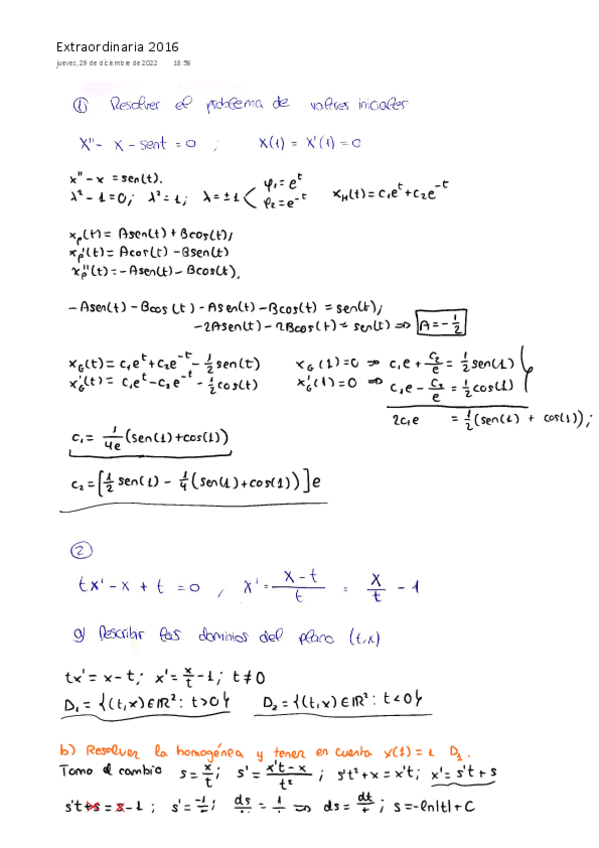 Extraordinaria 2016
jueves, 29 de diciembre de 2022 18:56
① Resolver el problema de valores iniciales
x'' - x - sent = 0 ; x(1) = x'(1) = 0
x'' - x = sen(t).
λ² - 1 = 0; λ² = 1; λ = ±1 < φ₁ = e^t φ₂ = e^-t x_H(t) = c₁e^t + c₂e^-t
x_p(t) = Asen(t) + Bcos(t);
x_p'(t) = Acos(t) - Bsen(t)
x_p''(t) = -Asen(t) - Bcos(t).
-Asen(t) - Bcos(t) - Asen(t) - Bcos(t) = sen(t);
-2Asen(t) - 2Bcos(t) = sen(t) => A = -1/2
x_G(t) = c₁e^t + c₂e^-t - 1/2 sen(t) x_G(1) = 0 => c₁e + c₂/e = 1/2 sen(1)
x_G'(t) = c₁e^t - c₂e^-t - 1/2 cos(t) x_G'(1) = 0 => c₁e - c₂/e = 1/2 cos(1)
2c₁e = 1/2 (sen(1) + cos(1));
c₁ = 1/4e (sen(1) + cos(1))
c₂ = [1/2 sen(1) - 1/4 (sen(1) + cos(1))] e
②
tx' - x + t = 0 ; x' = x - t / t = x/t - 1
a) Describir las dominios del plano (t,x)
tx' = x - t; x' = x/t - 1; t ≠ 0
D₁ = {(t,x) ∈ IR²: t > 0} D₂ = {(t,x) ∈ IR²: t < 0}
b) Resolver la homogénea y tener en cuenta x(1) = 1 D₁.
Tomo el cambio s = x/t; s' = x't - x / t² ; s't² + x = x't; x' = s't + s
s't + s = s - 1 ; s' = -1/t ; ds/dt = -1/t => ds = dt/t ; s = -ln|t| + C